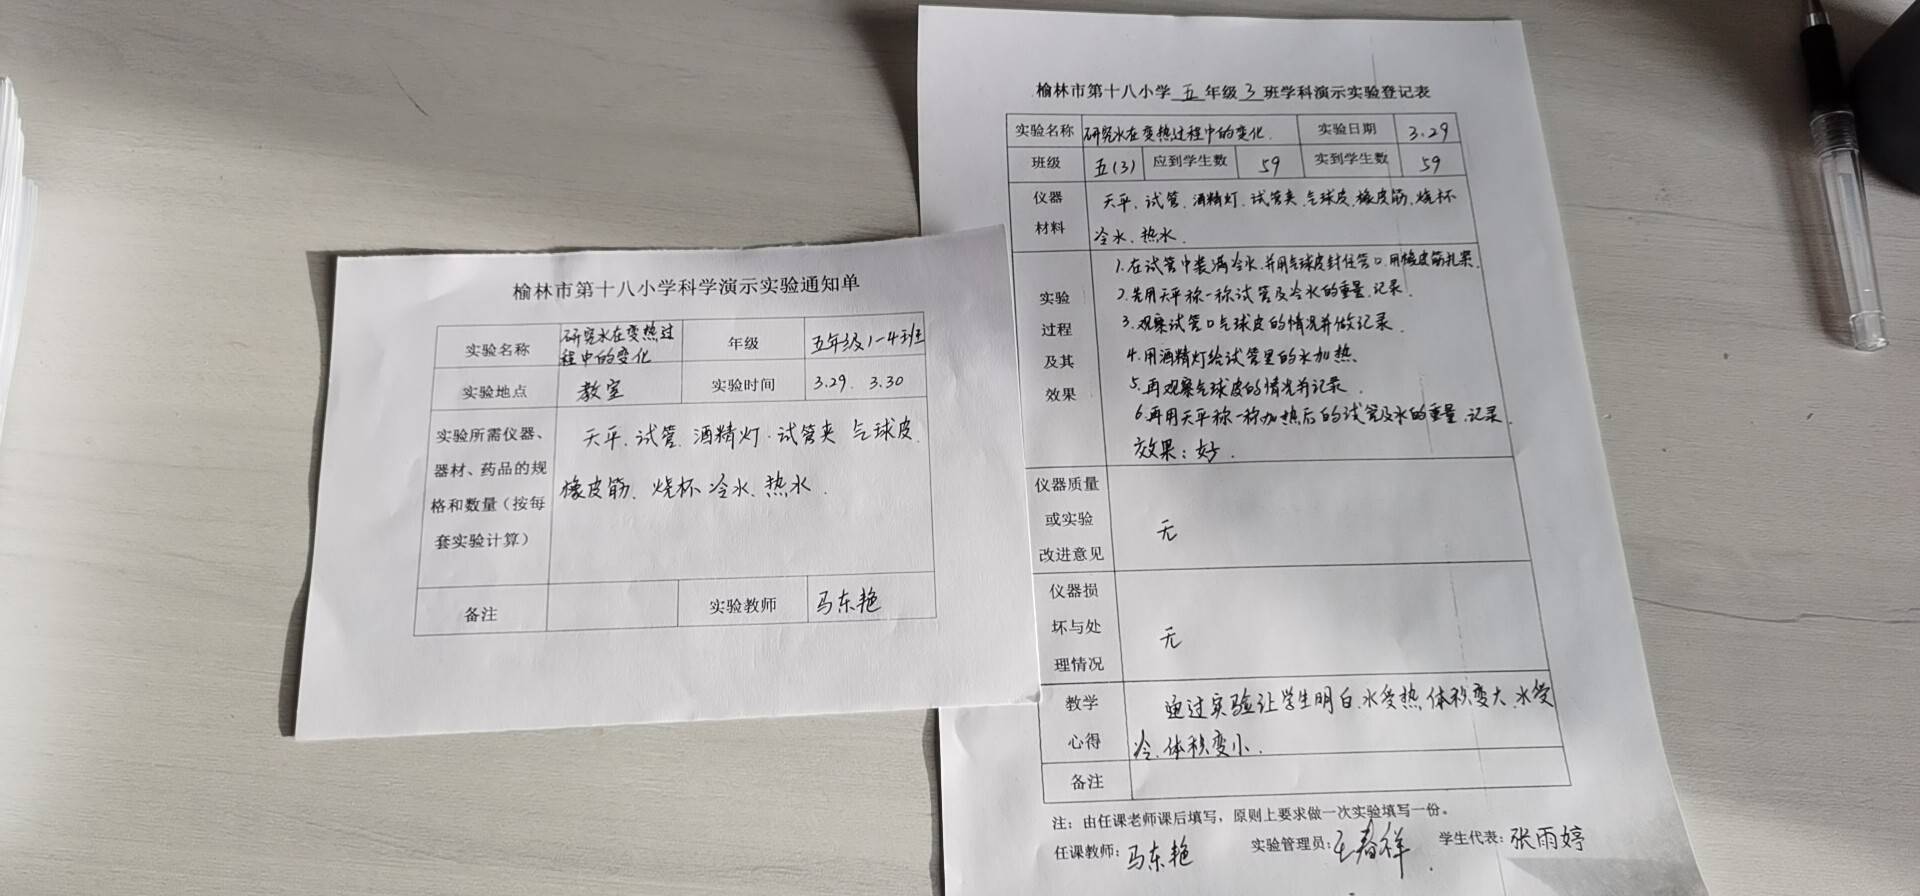 榆林市第十八小学科学演示实验通知单
实验名称 研究水在变热过 年级 五年级1-4班
程中的变化
实验地点 教室 实验时间 3.29. 3.30
实验所需仪器、 天平.试管.酒精灯.试管夹 气球皮.
器材、药品的规
格和数量(按每 橡皮筋. 烧杯 冷水.热水.
套实验计算)
备注 实验教师 马东艳
榆林市第十八小学 五 年级 3 班学科演示实验登记表
实验名称 研究水在变热过程中的变化. 实验日期 3.29
班级 五(3) 应到学生数 59 实到学生数 59
仪器 天平.试管.酒精灯.试管夹.气球皮.橡皮筋.烧杯
材料 冷水.热水.
实验
过程
及其
效果
1.在试管中装满冷水.并用气球皮封住管口.用橡皮筋扎紧.
2.先用天平称一称试管及冷水的重量.记录.
3.观察试管口气球皮的情况并做记录.
4.用酒精灯给试管里的水加热.
5.再观察气球皮的情况并记录.
6.再用天平称一称加热后的试管及水的重量.记录.
效果:好.
仪器质量
或实验 无
改进意见
仪器损
坏与处 无
理情况
教学 通过实验让学生明白.水受热.体积变大.水受
心得 冷.体积变小.
备注
注:由任课老师课后填写,原则上要求做一次实验填写一份。
任课教师:马东艳 实验管理员:王春祥. 学生代表:张雨婷